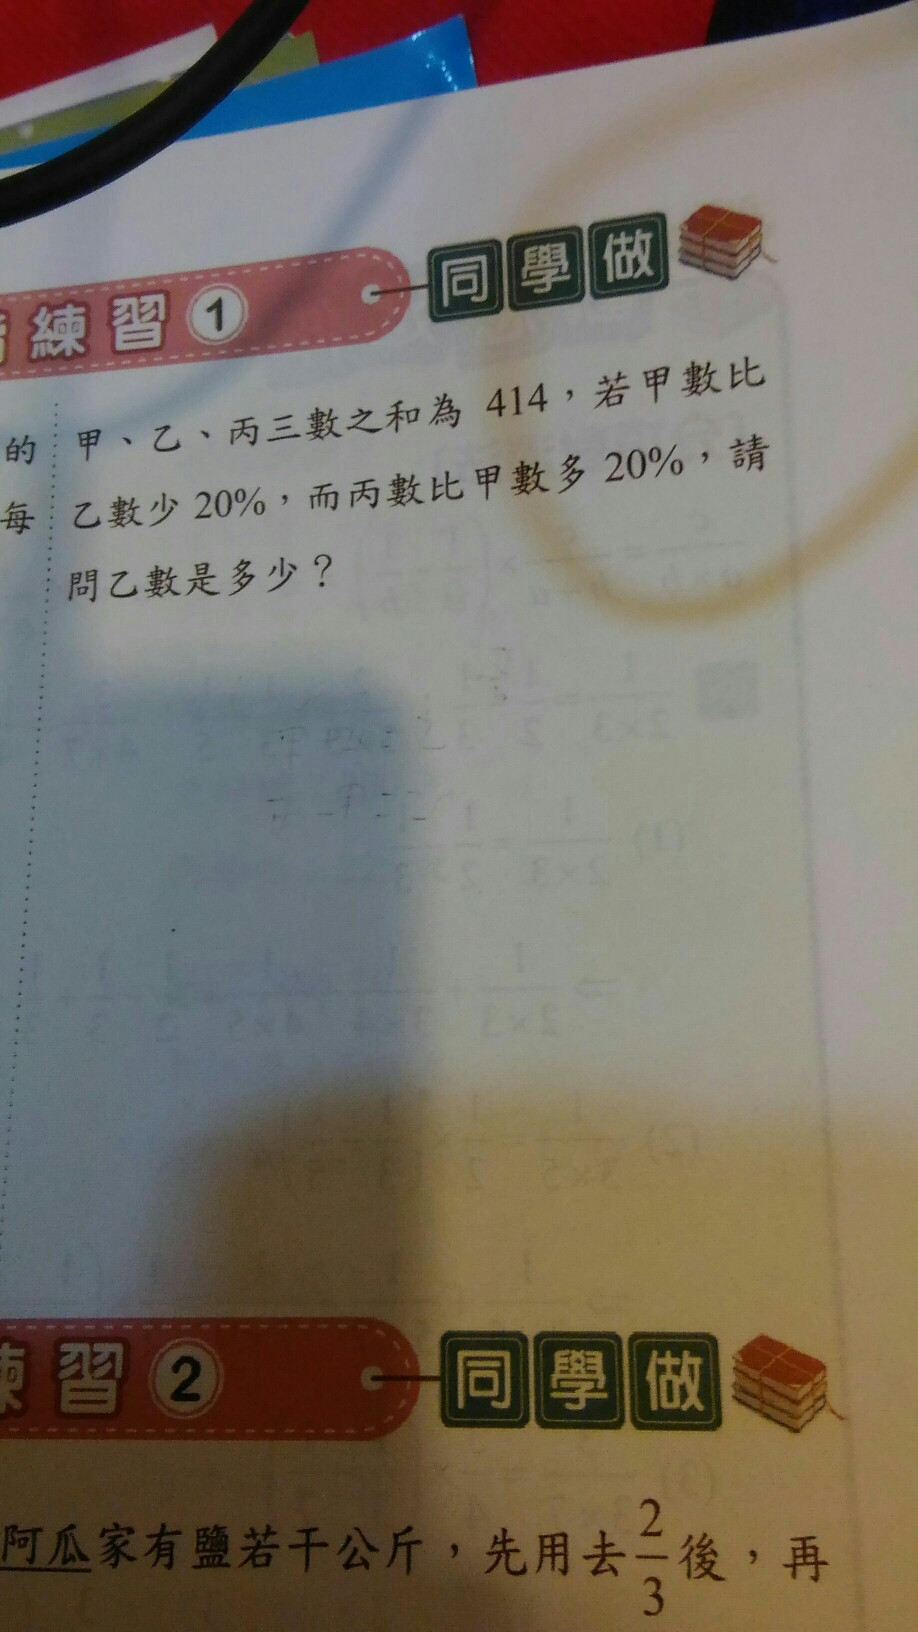 練習1 同學做
的
每
甲、乙、丙三數之和為 414，若甲數比
乙數少 20%，而丙數比甲數多 20%，請
問乙數是多少？
練習2 同學做
阿瓜家有鹽若干公斤，先用去2/3後，再